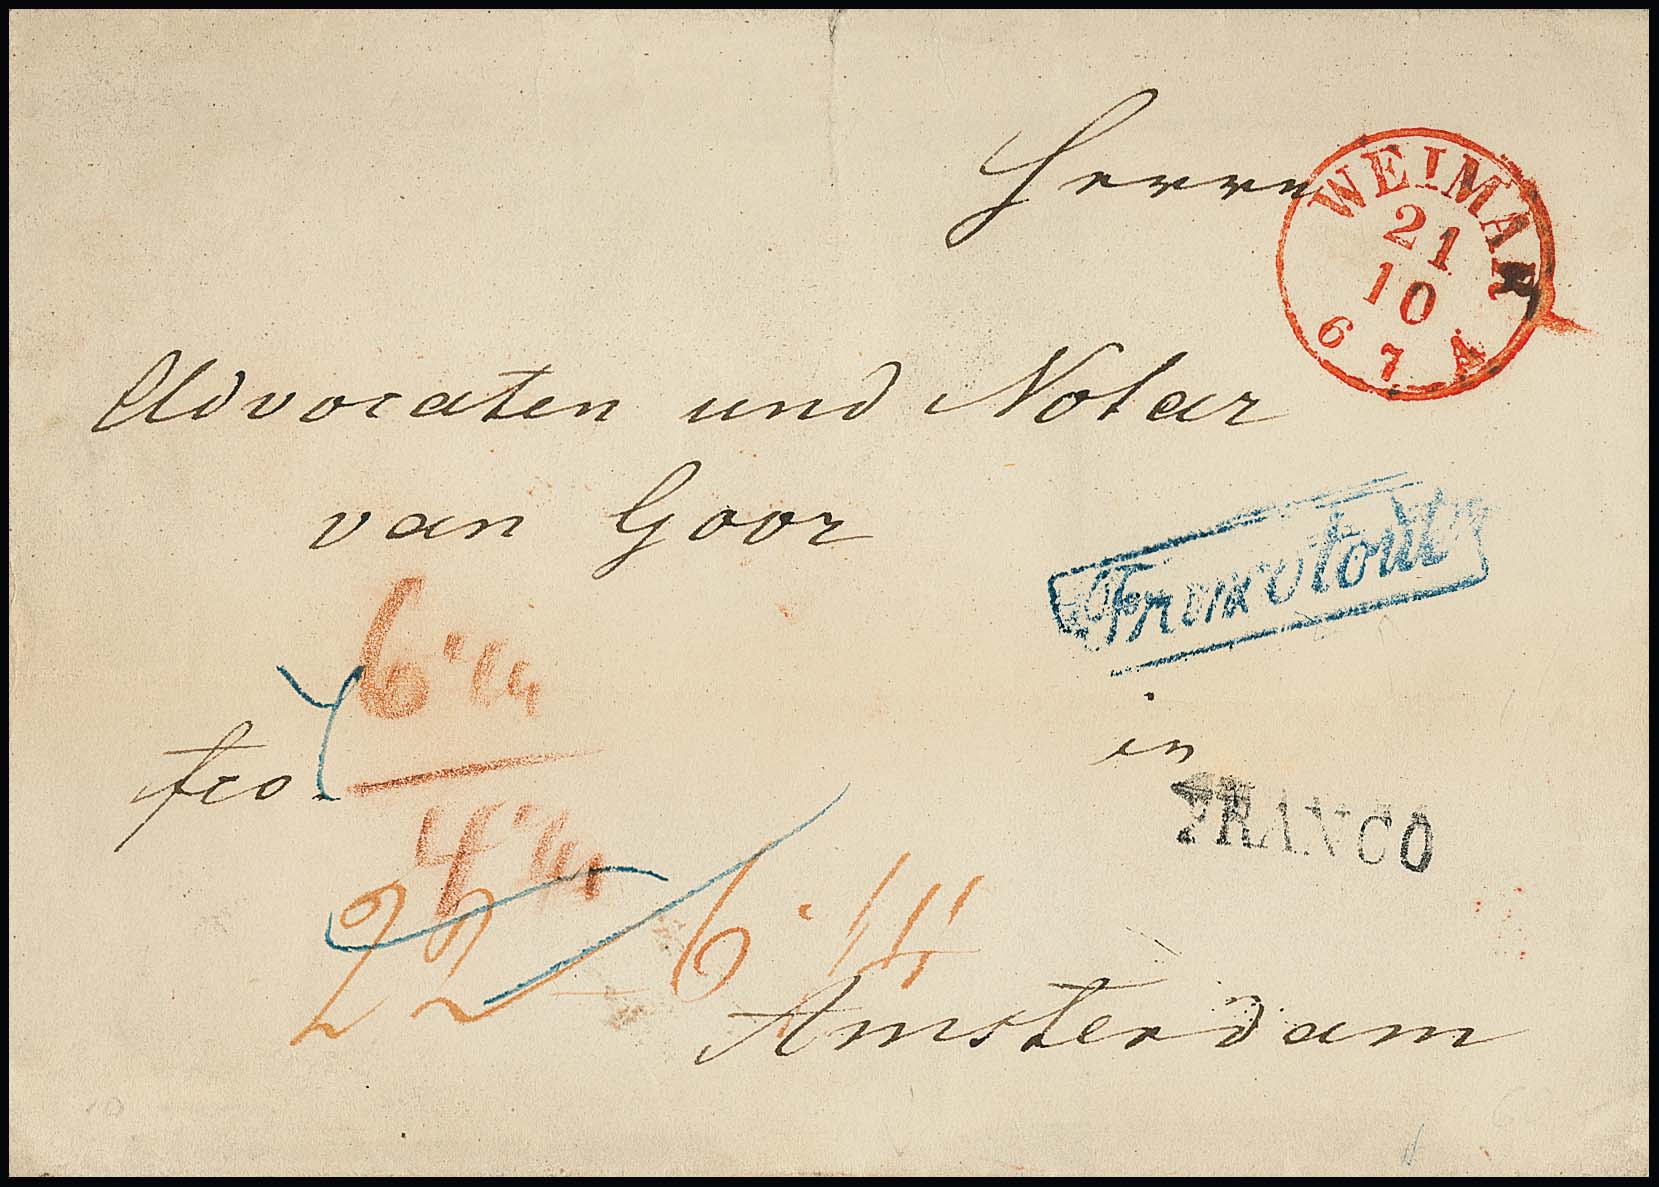 Herrn
WEIMAR
21
10
6 7 A
Advocaten und Notar
van Goor
Franco tout
6
fco.
in
FRANCO
4
22 6 · 14
Amsterdam